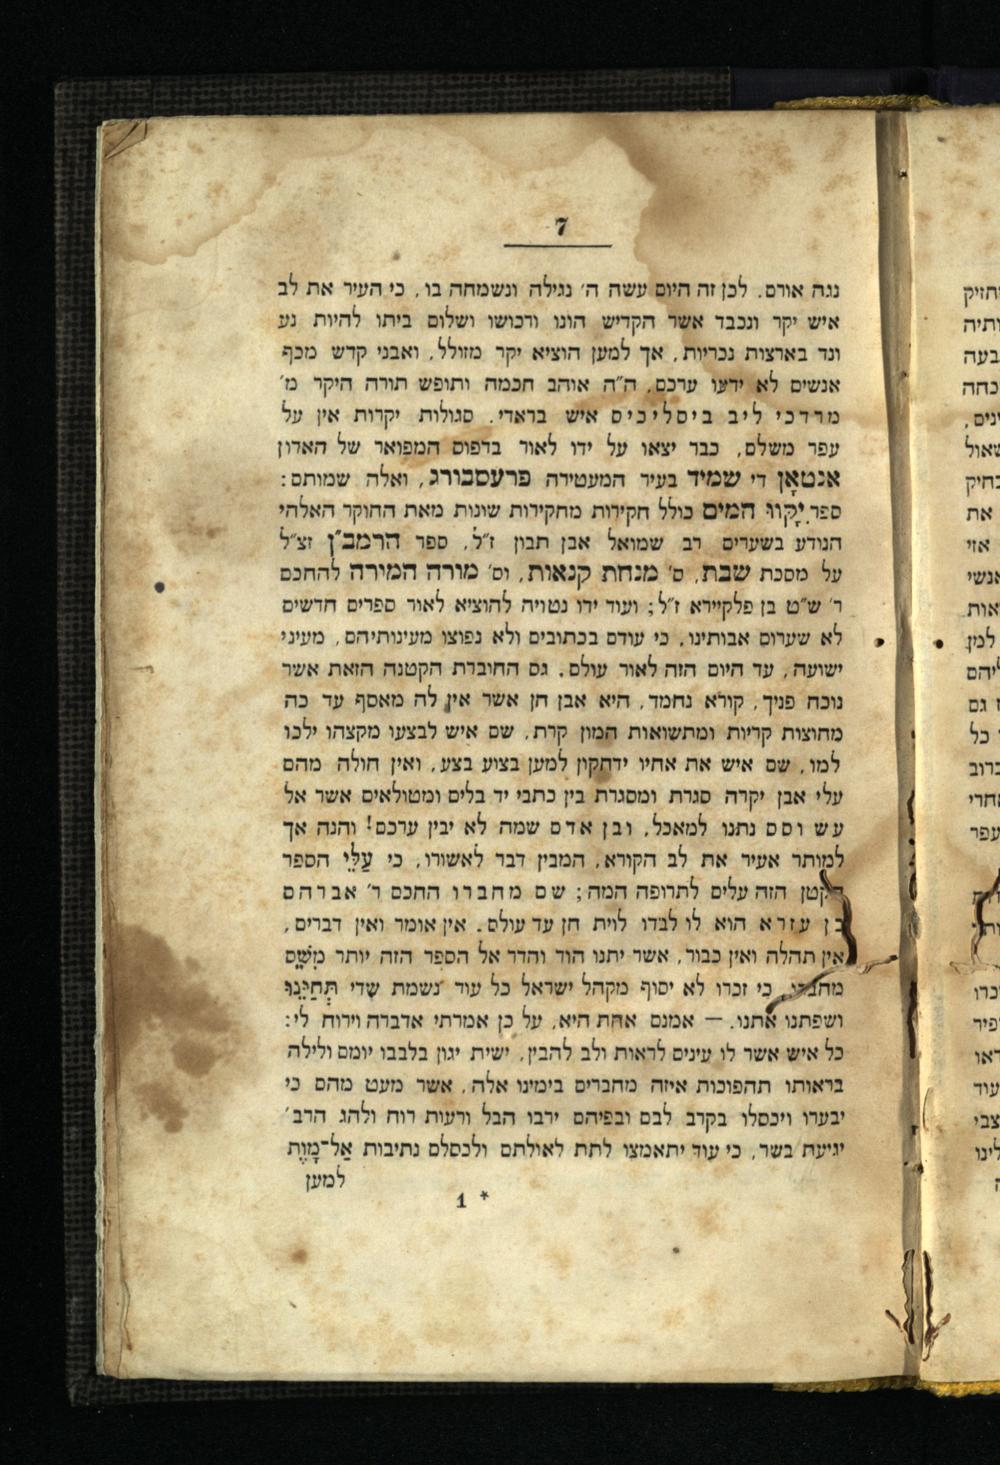 7
נגה אורם. לכן זה היום עשה ה׳ נגילה ונשמחה בו, כי העיר את לב
איש יקר ונכבד אשר הקדיש הונו ורכושו ושלום ביתו להיות נע
ונד בארצות נכריות, אך למען הוציא יקר מזולל, ואבני קדש מכף
אנשים לא ידעו ערכם, ה״ה אוהב חכמה ותופש תורה היקר מ׳
מרדכי ליב ביסליכיס איש בראדי. סגולות יקרות אין על
עפר משלם, כבר יצאו על ידו לאור בדפוס המפואר של האדון
אנטאָן די שמיד בעיר המעטירה פרעסבורג, ואלה שמותם:
ספר יִקָווּ המים כולל חקירות מחקירות שונות מאת החוקר האלהי
הנודע בשערים רב שמואל אבן תבון ז״ל, ספר הרמב״ן זצ״ל
על מסכת שבת, ס׳ מנחת קנאות, וס׳ מורה המורה להחכם
ר׳ ש״ט בן פלקיירא ז״ל; ועוד ידו נטויה להוציא לאור ספרים חדשים
לא שערום אבותינו, כי עודם בכתובים ולא נפוצו מעינותיהם, מעיני
ישועה, עד היום הזה לאור עולם. גם החוברת הקטנה הזאת אשר
נוכח פניך, קורא נחמד, היא אבן חן אשר אין לה מאסף עד כה
מחוצות קריות ומתשואות המון קרת, שם איש לבצעו מקצהו ילכו
למו, שם איש את אחיו ידחקון למען בצוע בצע, ואין חולה מהם
עלי אבן יקרה סגרת ומסגרת בין כתבי יד בלים ומטולאים אשר אל
עש וסס נתנו למאכל, ובן אדם שמה לא יבין ערכם! והנה אך
למותר אעיר את לב הקורא, המבין דבר לאשורו, כי עַלֵּי הספר
הקטן הזה עלים לתרופה המה; שם מחברו החכם ר׳ אברהם
בן עזרא הוא לו לבדו לוית חן עד עולם. אין אומר ואין דברים,
אין תהלה ואין כבור, אשר יתנו הוד והדר אל הספר הזה יותר מִשֵּׁם
מחברו, כי זכרו לא יסוף מקהל ישראל כל עוד נשמת שדי תְּחַיֵּנוּ
ושפתנו אתנו. — אמנם אחת היא, על כן אמרתי אדברה וירוח לי:
כל איש אשר לו עינים לראות ולב להבין, ישית יגון בלבבו יומם ולילה
בראותו תהפוכות איזה מחברים בימינו אלה, אשר מעט מהם כי
יבערו ויכסלו בקרב לבם ובפיהם ירבו הבל ורעות רוח ולהג הרב׳
יגיעת בשר, כי עוד יתאמצו לתת לאולתם ולכסלם נתיבות אַל־מָוֶת
למען
1 *